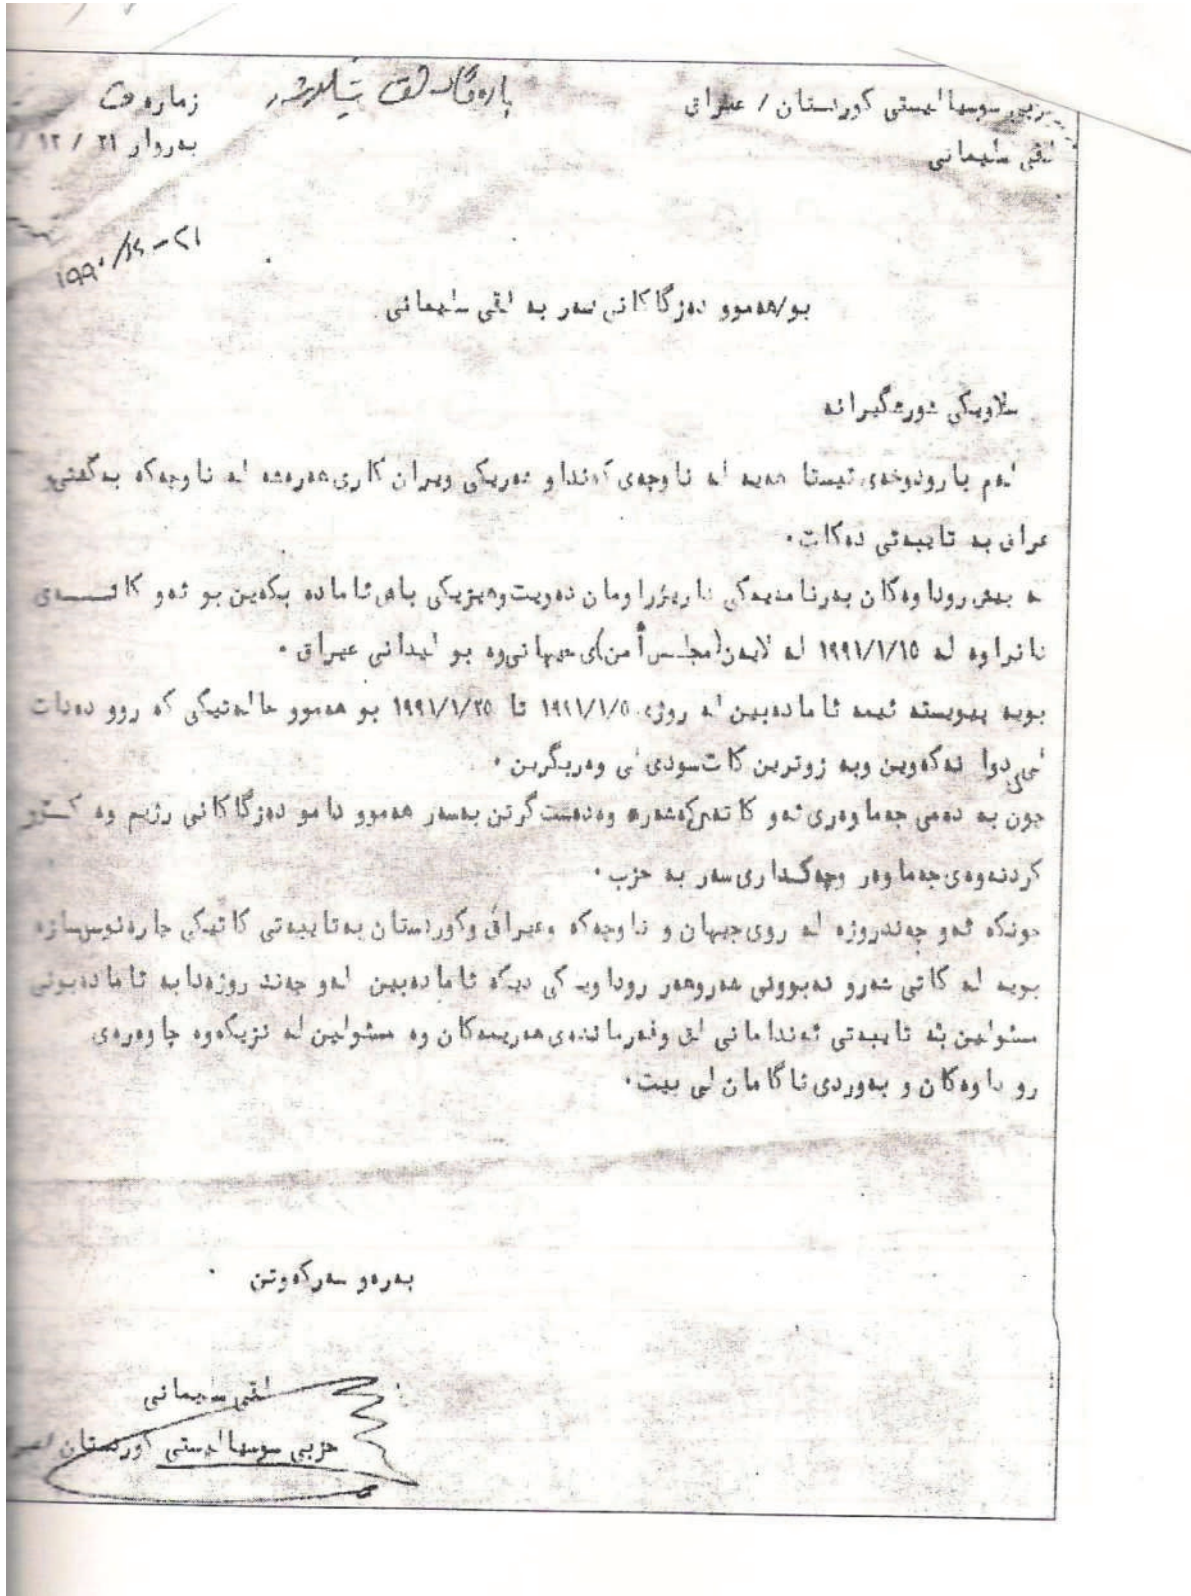 حزبی سوسیالیستی کوردستان / عیراق
لقی سلیمانی
بارەگای لقی
ژمارە
بەروار ٢١ / ١٢ /
٢١-١٢/١٩٩٠
بو/هەموو دەزگاکانی سەر بە لقی سلیمانی
سلاویکی شورشگیرانە
لەم بارودوخەی ئیستا هەیە لە ناوچەی کەنداو شەریکی ویران کاری هەرەشە لە ناوچەکە بەگشتی و
عراق بە تایبەتی دەکات.
بەرنامەیەکی داریژراومان دەویت وهیزیکی باش ئامادە بکەین بو ئەو کاتـــەی
دانراوە لە ١٩٩١/١/١٥ لە لایەن(مجلس أمن)ی جیهانی وە بو لیدانی عیراق .
بویە پیویستە ئیمە ئامادەبین لە روژی ١٩٩١/١/٥ تا ١٩٩١/١/٢٥ بو هەموو حالەتیکی کە روو دەدات
دوا نەکەوین وبە زوترین کات سودی لی وەربگرین .
چون بە دەمی جەماوەری ئەو کاتەی وەدەست گرتن بەسەر هەموو دامو دەزگاکانی رژیم وە
کردنەوەی جەماوەر وچەکداری سەر بە حزب .
چونکە ئەو چەندروژە لە روی جیهان و ناوچەکە وعیراق وکوردستان بەتایبەتی کاتیکی چارەنوس سازە
بویە لە کاتی شەرو نەبوونی شەروهەر روداویکی دیکە ئامادەبین لەو چەند روژەدا بە ئامادەبونی
مسئولین بە تایبەتی ئەندامانی لق وفەرماندەی هەریمەکان وە مسئولین لە نزیکەوە چاوەرەی
روداوەکان و بەوردی ئاگامان لی بیت .
بەرەو سەرکەوتن .
لقی سلیمانی
حزبی سوسیالیستی کوردستان